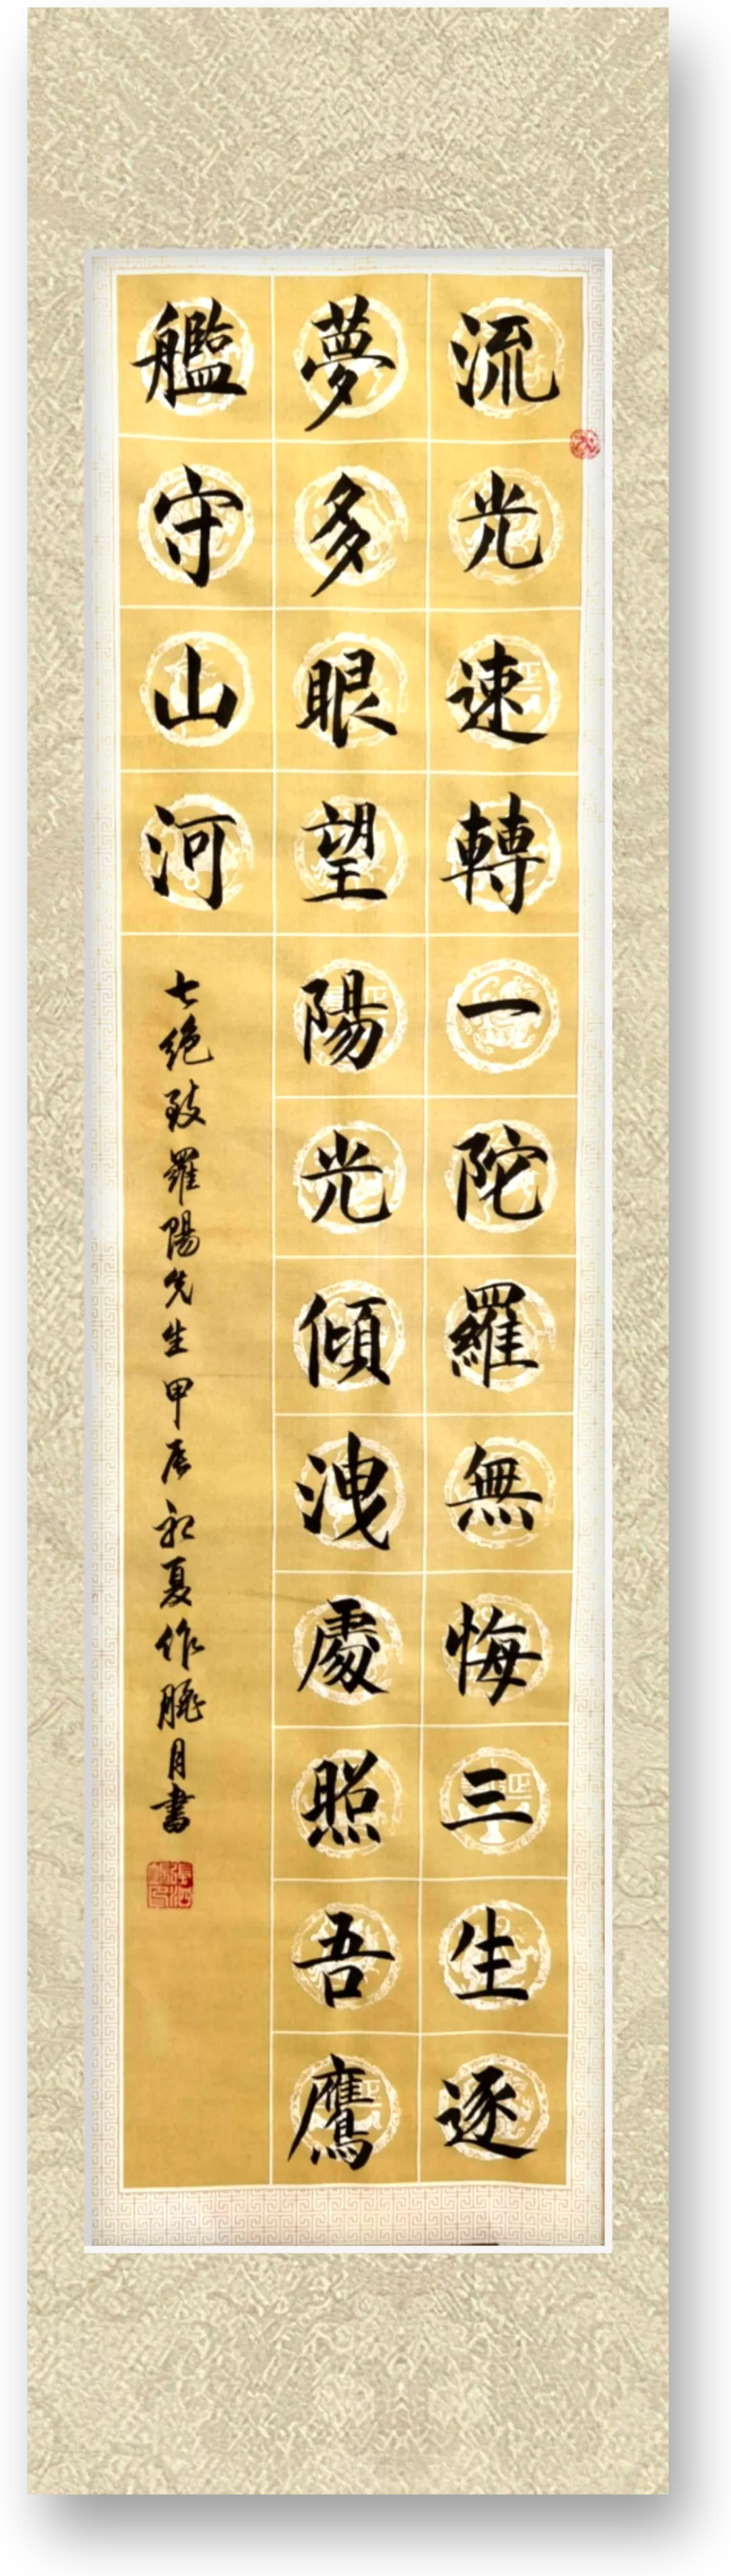 流光速轉一陀羅無悔三生逐
夢多眼望陽光傾洩處照吾鷹
艦守山河
七絕致羅陽先生甲辰初夏作臒月書